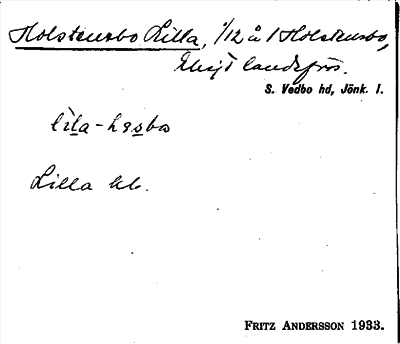 Holstensbo Lilla, 1/12 å 1 Holstensbo,
Eksjö landsförs.
S. Vedbo hd, Jönk. l.
lila-hosbo
Lilla hb.
FRITZ ANDERSSON 1933.